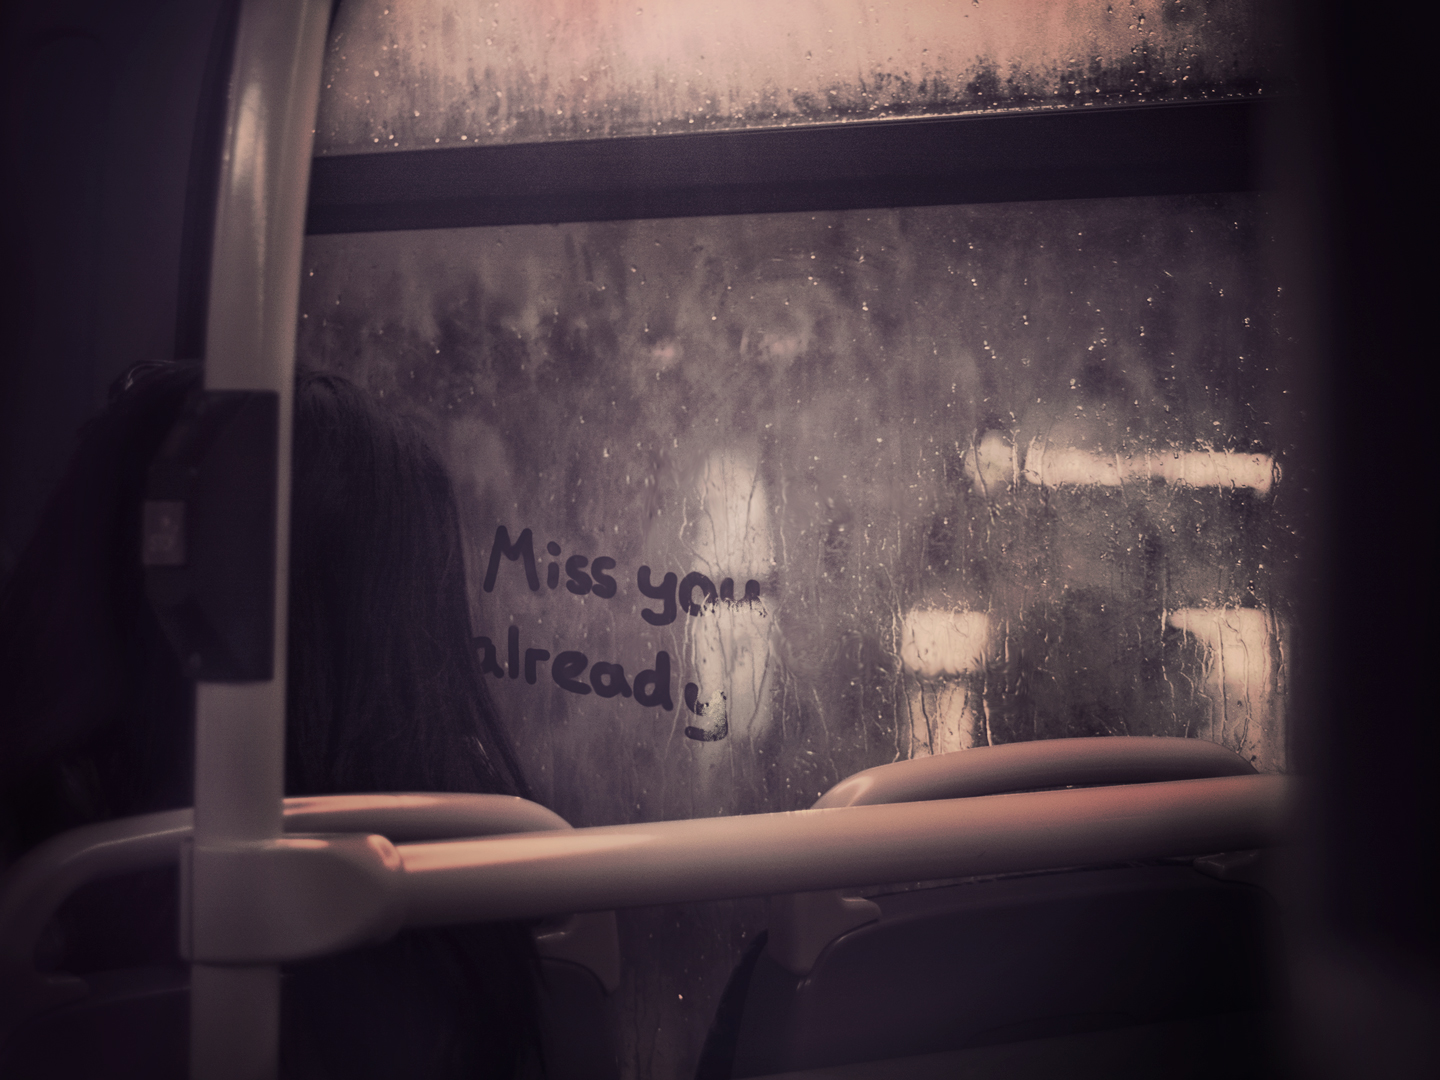 Miss you
already